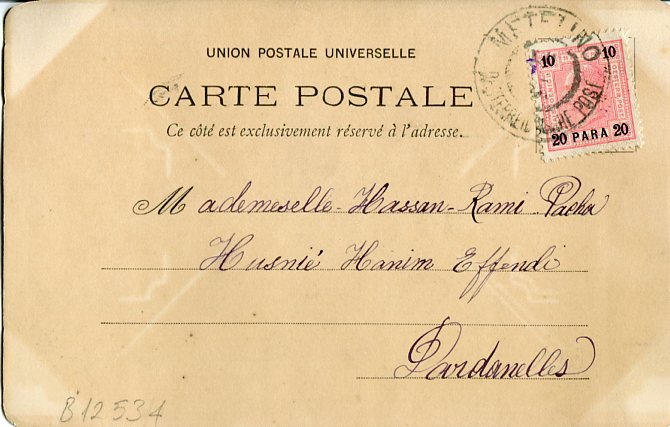 UNION POSTALE UNIVERSELLE
CARTE POSTALE
Ce côté est exclusivement réservé à l'adresse.
METELINO
OESTERREICHISCHE POST
10 10
20 PARA 20
Mademeselle Hassan-Rami Pacha
Husnié Hanim Effendi
Dardanelles
B12534